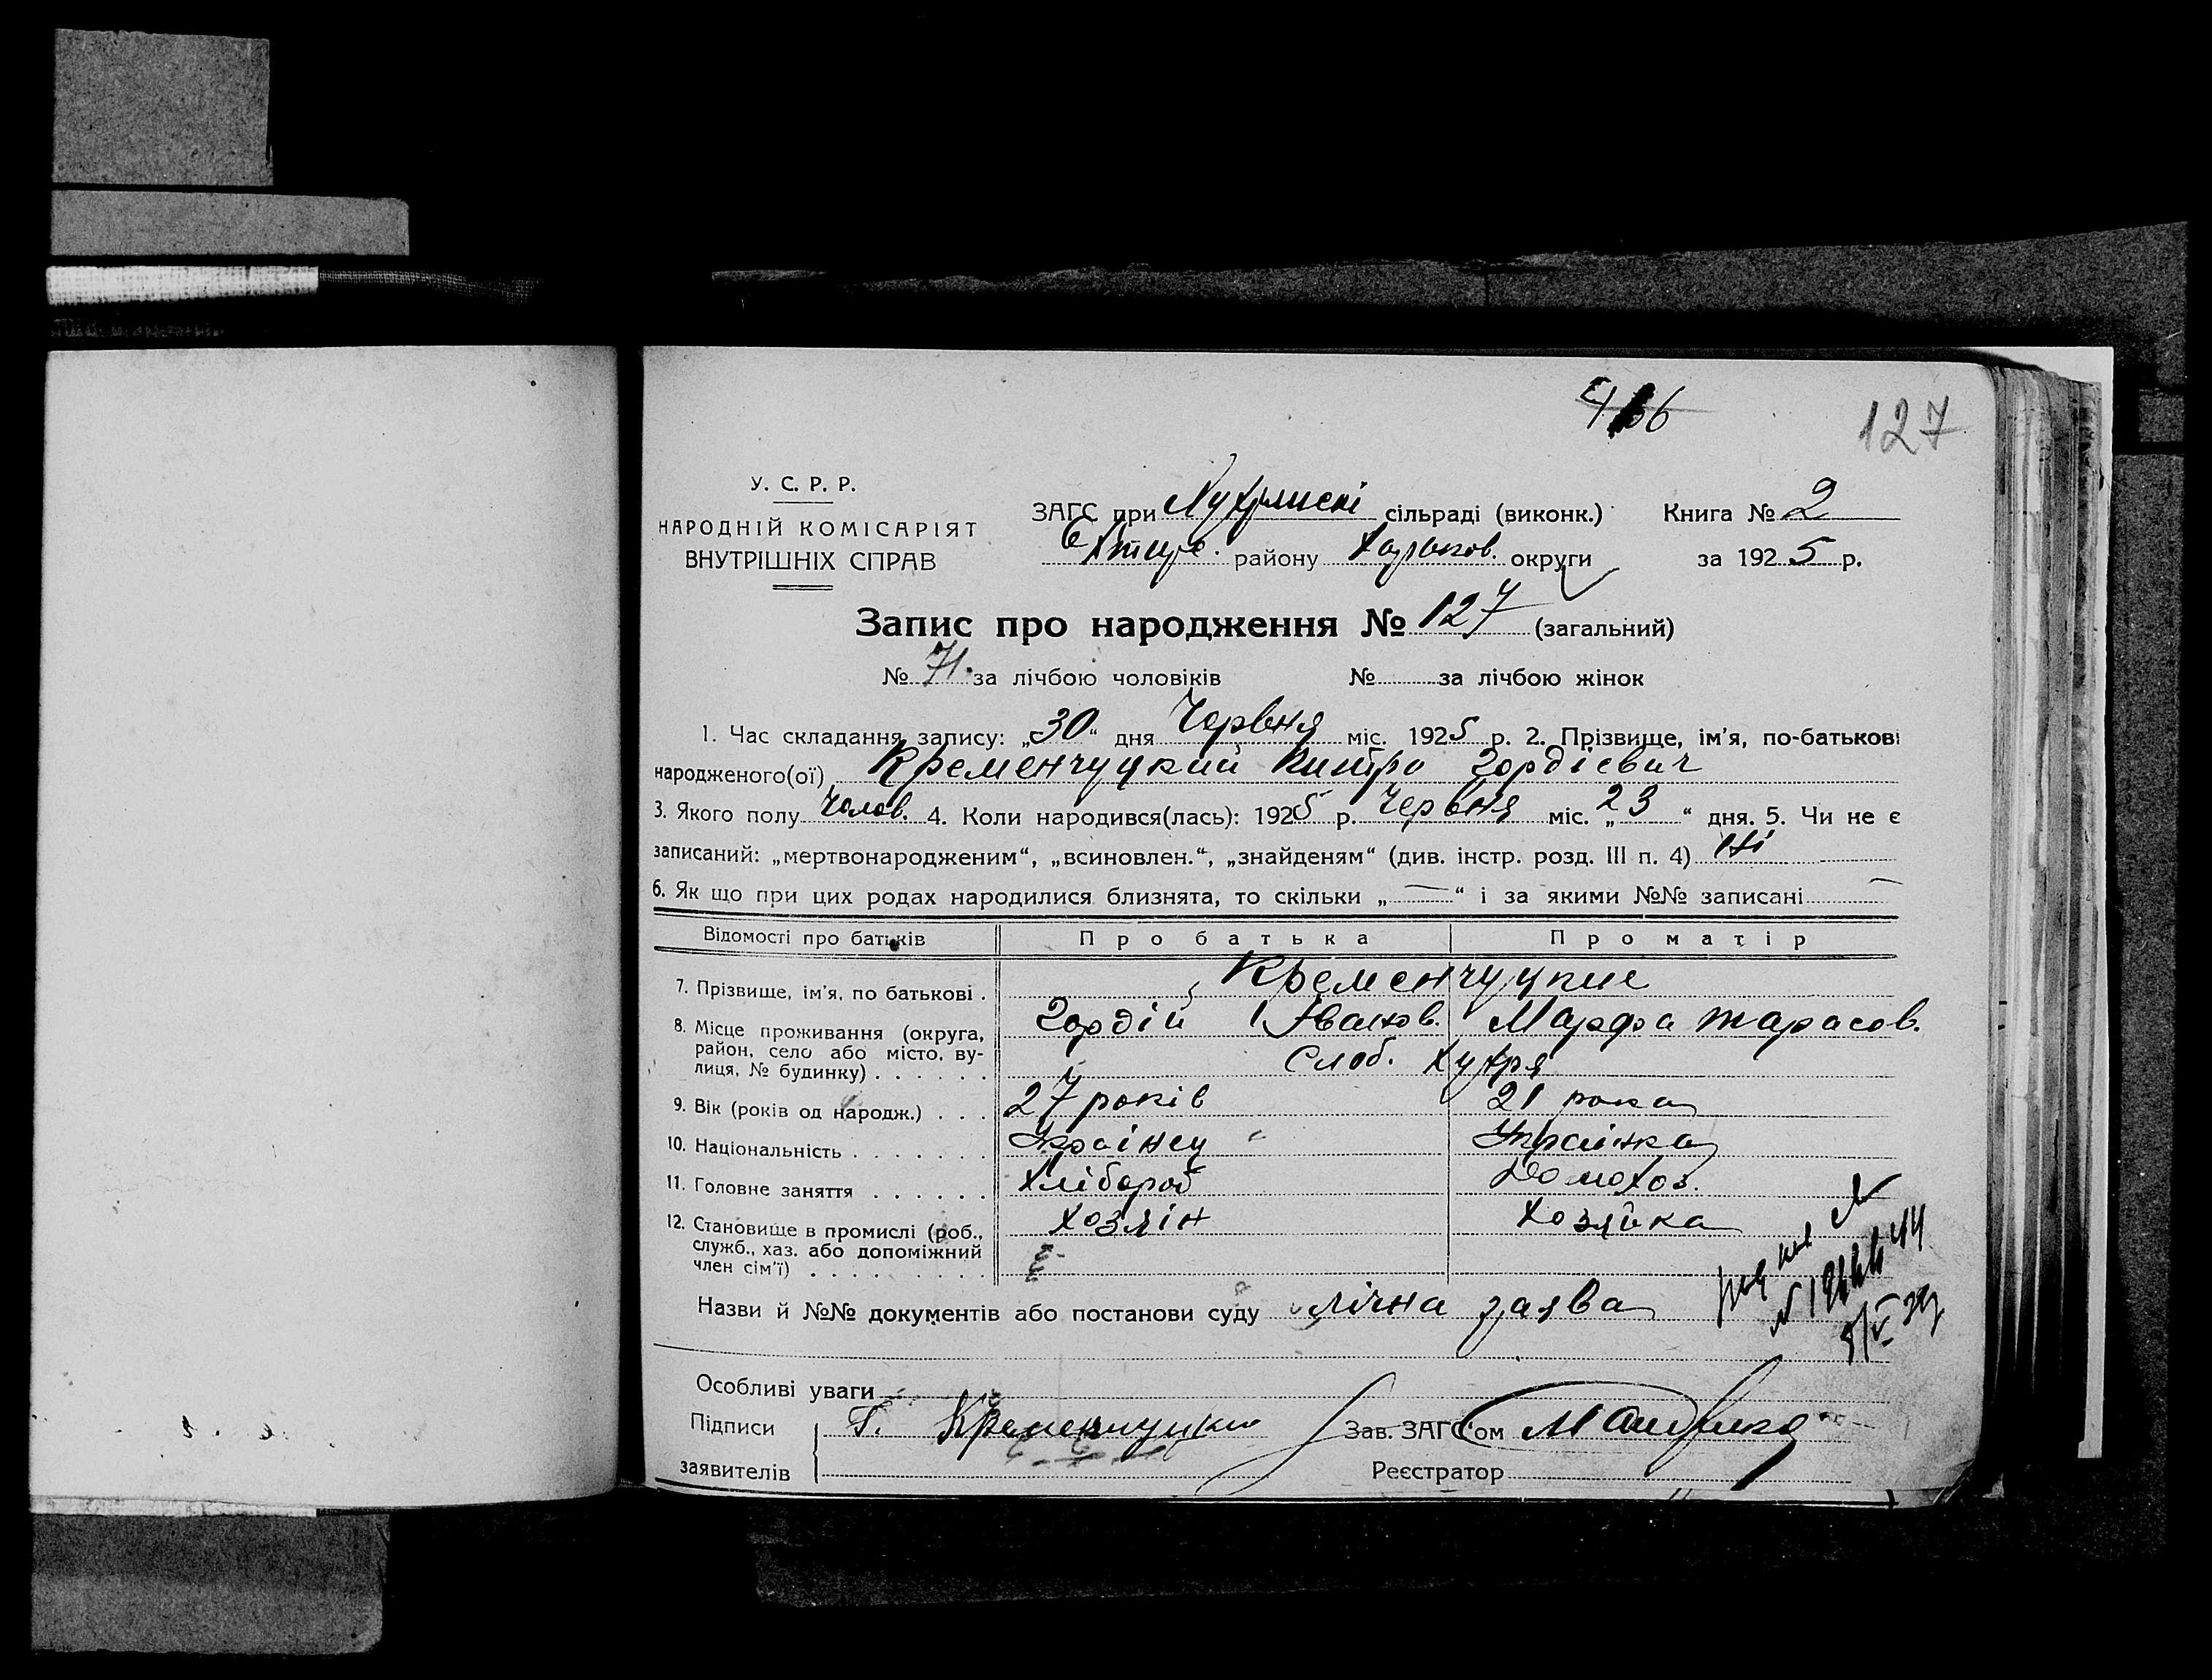 127
У. С. Р. Р.
НАРОДНІЙ КОМІСАРІЯТ
ВНУТРІШНІХ СПРАВ
ЗАГС при сільраді (виконк.) Книга № 2
району Харьков. округи за 1925 р.
Запис про народження № 127 (загальний)
№ 71. за лічбою чоловіків № за лічбою жінок
1. Час складання запису: „30“ дня Червня міс. 1925 р. 2. Прізвище, ім'я, по-батькові
народженого(ої) Кременчуцкий Гордієвич
3. Якого полу Чолов. 4. Коли народився(лась): 1925 р. Червня міс. „23“ дня. 5. Чи не є
записаний: „мертвонародженим“, „всиновлен.“, „знайденям“ (див. інстр. розд. III п. 4) Ні
6. Як що при цих родах народилися близнята, то скільки „—“ і за якими №№ записані —
Відомості про батьків Про батька Про матір
7. Прізвище, ім'я, по батькові . Кременчуцкие
8. Місце проживання (округа, Гордій Іванов. Марфа Тарасов.
район, село або місто, ву-
лиця, № будинку) . . . . . . Слоб. Хухря
9. Вік (років од народж.) . . . 27 років 21 рока
10. Національність . . . . . . . Українец Українка
11. Головне заняття . . . . . . Хлібороб Домохоз.
12. Становище в промислі (роб., Хозяін Хозяйка
служб., хаз. або допоміжний
член сім'ї) . . . . . . . . .
Назви й №№ документів або постанови суду лічна заява
Особливі уваги
Підписи Г. Кременчуцки Зав. ЗАГС'ом
заявителів Реєстратор